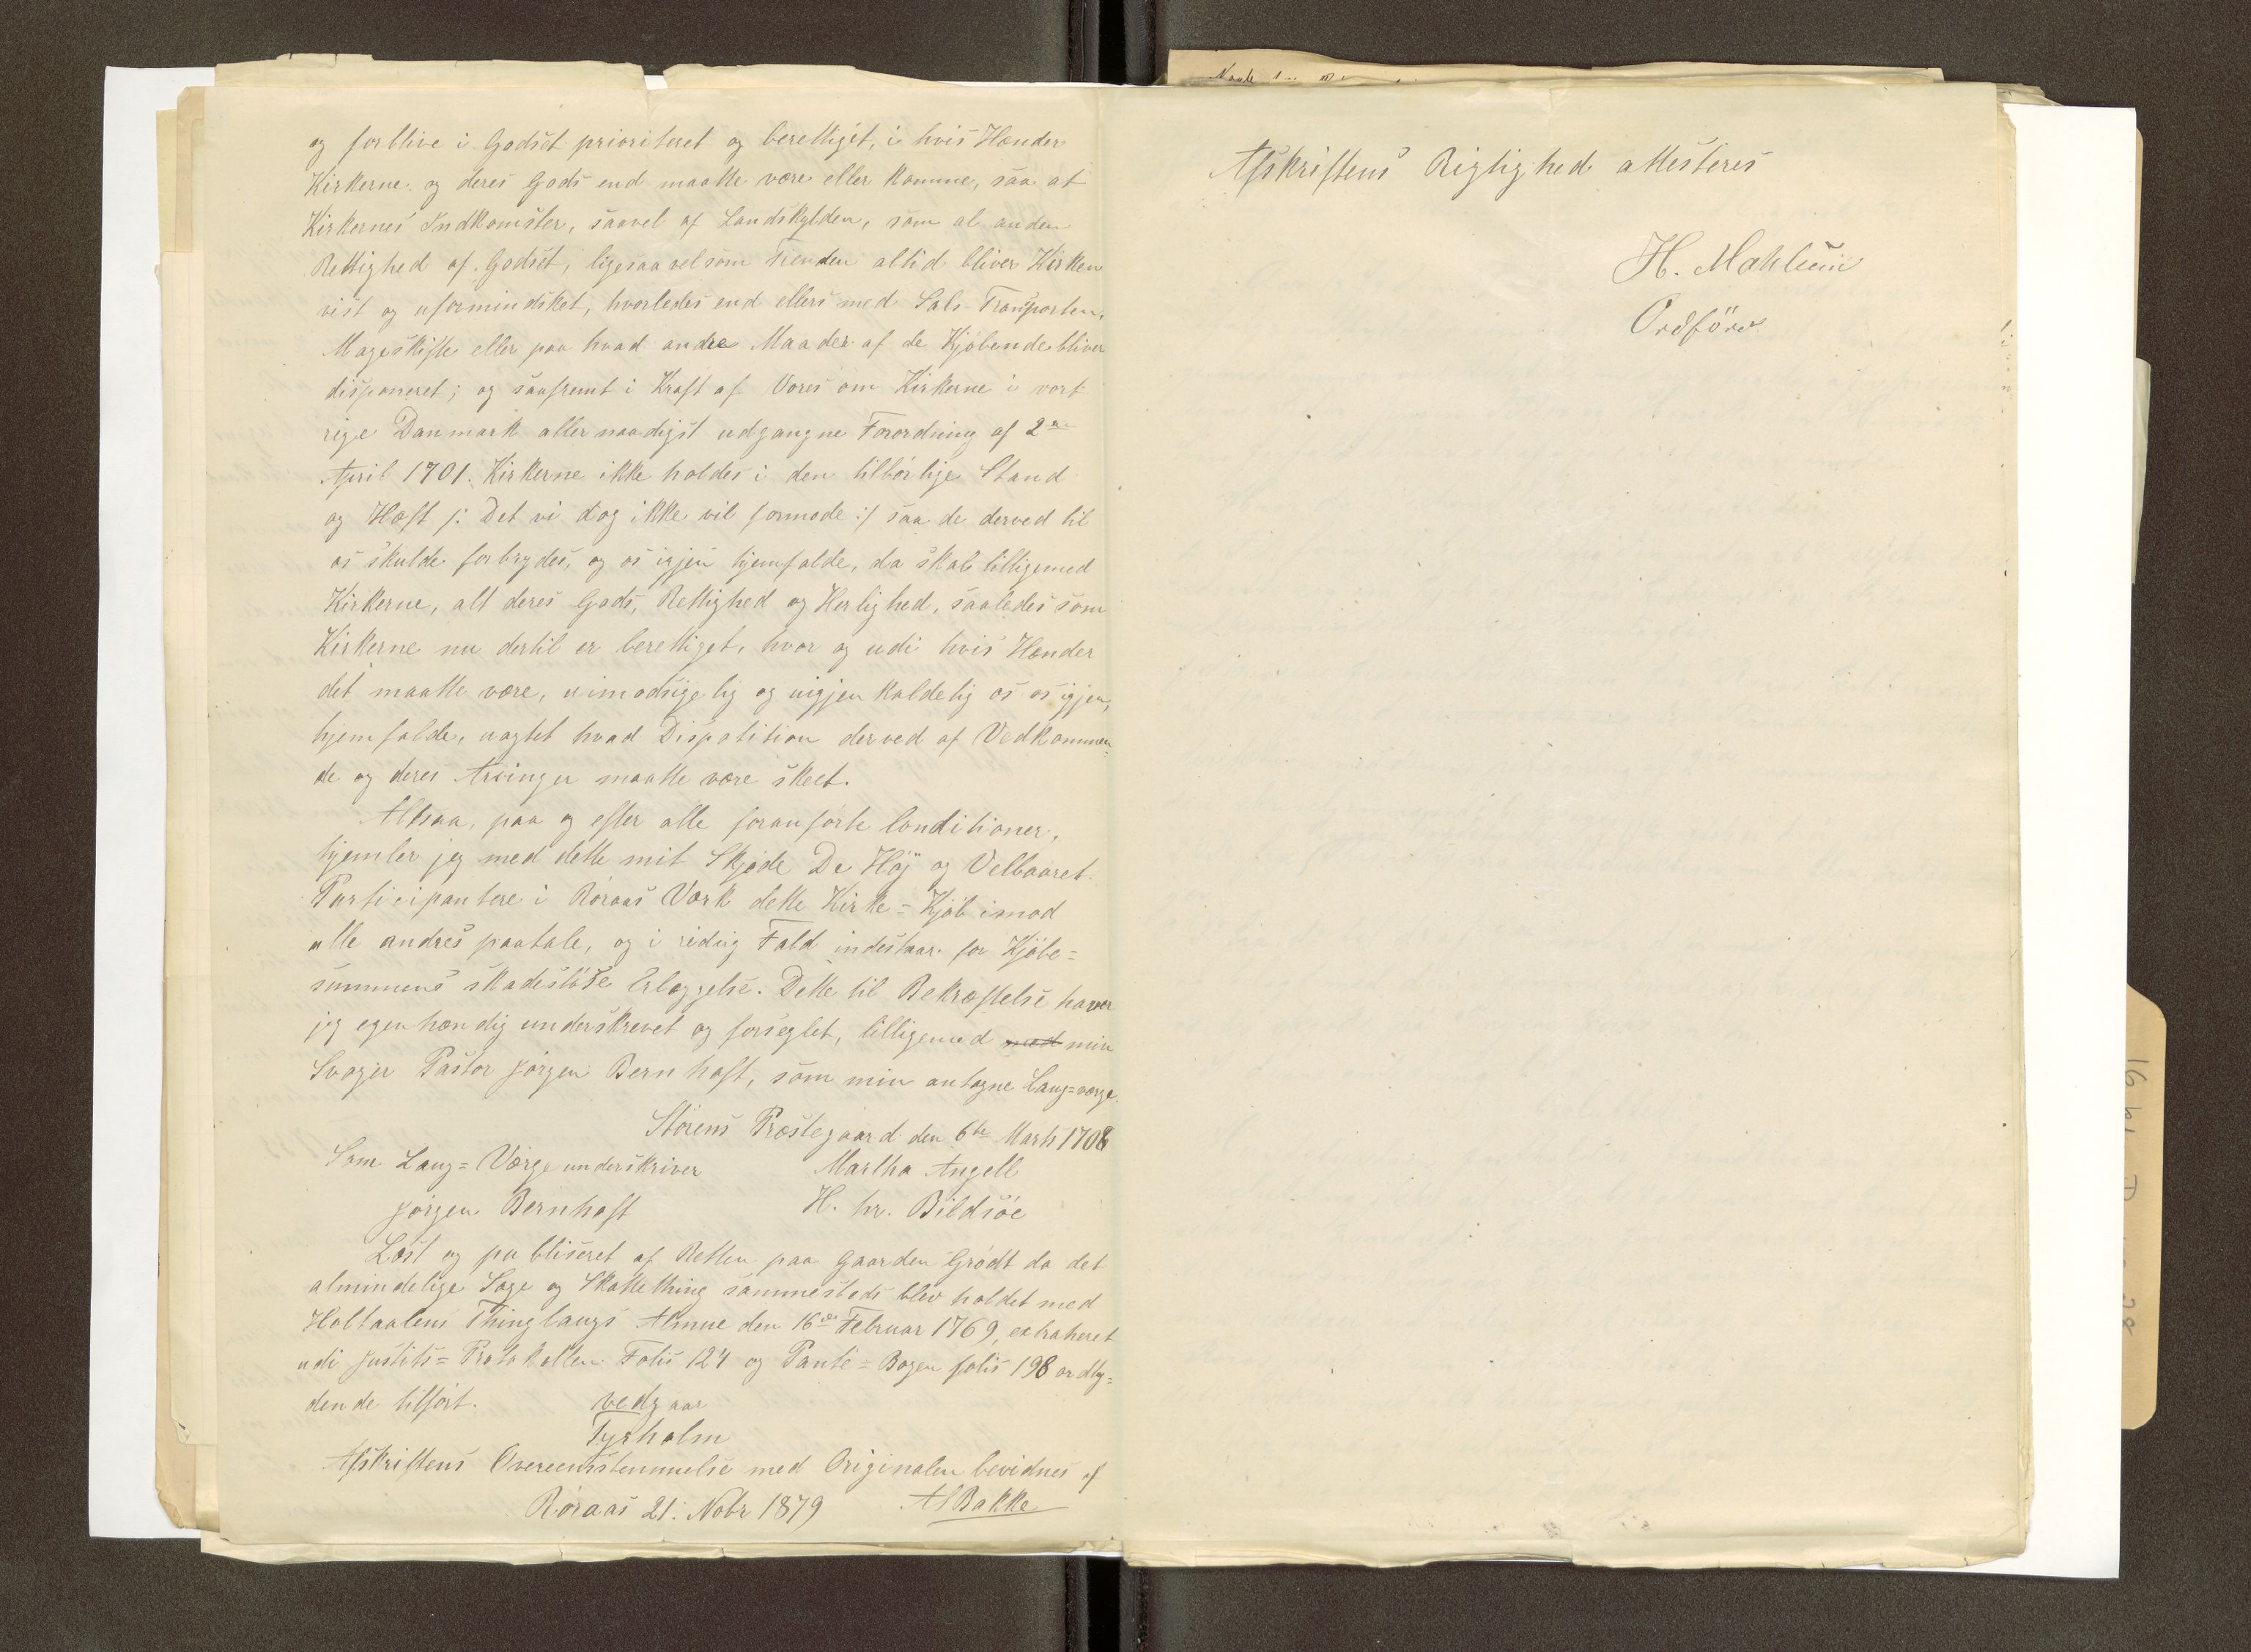 og forblive i Godset prioriteret og berettiget, i hvis Hænder
Kirkerne og deres Gods end maatte være eller komme, saa at
Kirkernes Indkomster, saavel af Landskylden, som al anden
Rettighed af Godset, ligesaavelsom Tienden altid bliver Kirken
vist og uformindsket, hvorledes end ellers med Sals-Transporten,
Mageskifte eller paa hvad andre Maader af de Kjøbende bliver
disponeret; og saafremt i Kraft af Vores om Kirkerne i vort
rige Danmark allernaadigst udgangne Forordning af 2den
April 1701. Kirkerne ikke holdes i den tilbørlige Stand
og Hæft /: Det vi dog ikke vil formode :/ saa de derved til
os skulde forbrydes, og os igjen hjemfalde, da skal tilligemed
Kirkerne, alt deres Gods, Rettighed og Herlighed, saaledes som
Kirkerne nu dertil er berettiget, hvor og udi hvis Hænder
det maatte være, uimodsigelig og uigjenkaldelig os os igjen,
hjemfalde, uagtet hvad Dispotition derved af Vedkommen=
de og deres Arvinger maatte være skeet.
Altsaa, paa og efter alle foranførte Conditioner,
hjemler jeg med dette mit Skjøde De Høj og Velbaaret
Participantere i Røraas Værk dette Kirke=Kjøb imod
alle andres paatale, og i vidrig Fald indestaar for Kjøbe=
summens skadesløse Erlæggelse. Dette til Bekræftelse haver
jeg egenhændig underskrevet og forseglet, tilligemed med min
Svoger Pastor Jørgen Bernhoft, som min antagne Laug=værge.
Størens Præstegaard den 6te Marts 1708
Som Laug=Værge underskriver Martha Angell
Jørgen Bernhoft H. hr. Bildsöe
Læst og publiseret af Retten paa Gaarden Grødt da det
almindelige Sage og Skattething sammesteds blev holdet med
Holtaalens Thinglaugs Almue den 16de Februar 1769, extraheret
udi Justits=Protokollen Folis 124 og Pante=Bogen folis 198 ordly=
dende tilført. vedgaar
Tyrholm
Afskriftens Overeensstemmelse med Originalen bevidnes af
Røraas 21. Nobr 1879 A Bakke
Afskriftens Rigtighed attesteres
H. Mahlum
Ordförer